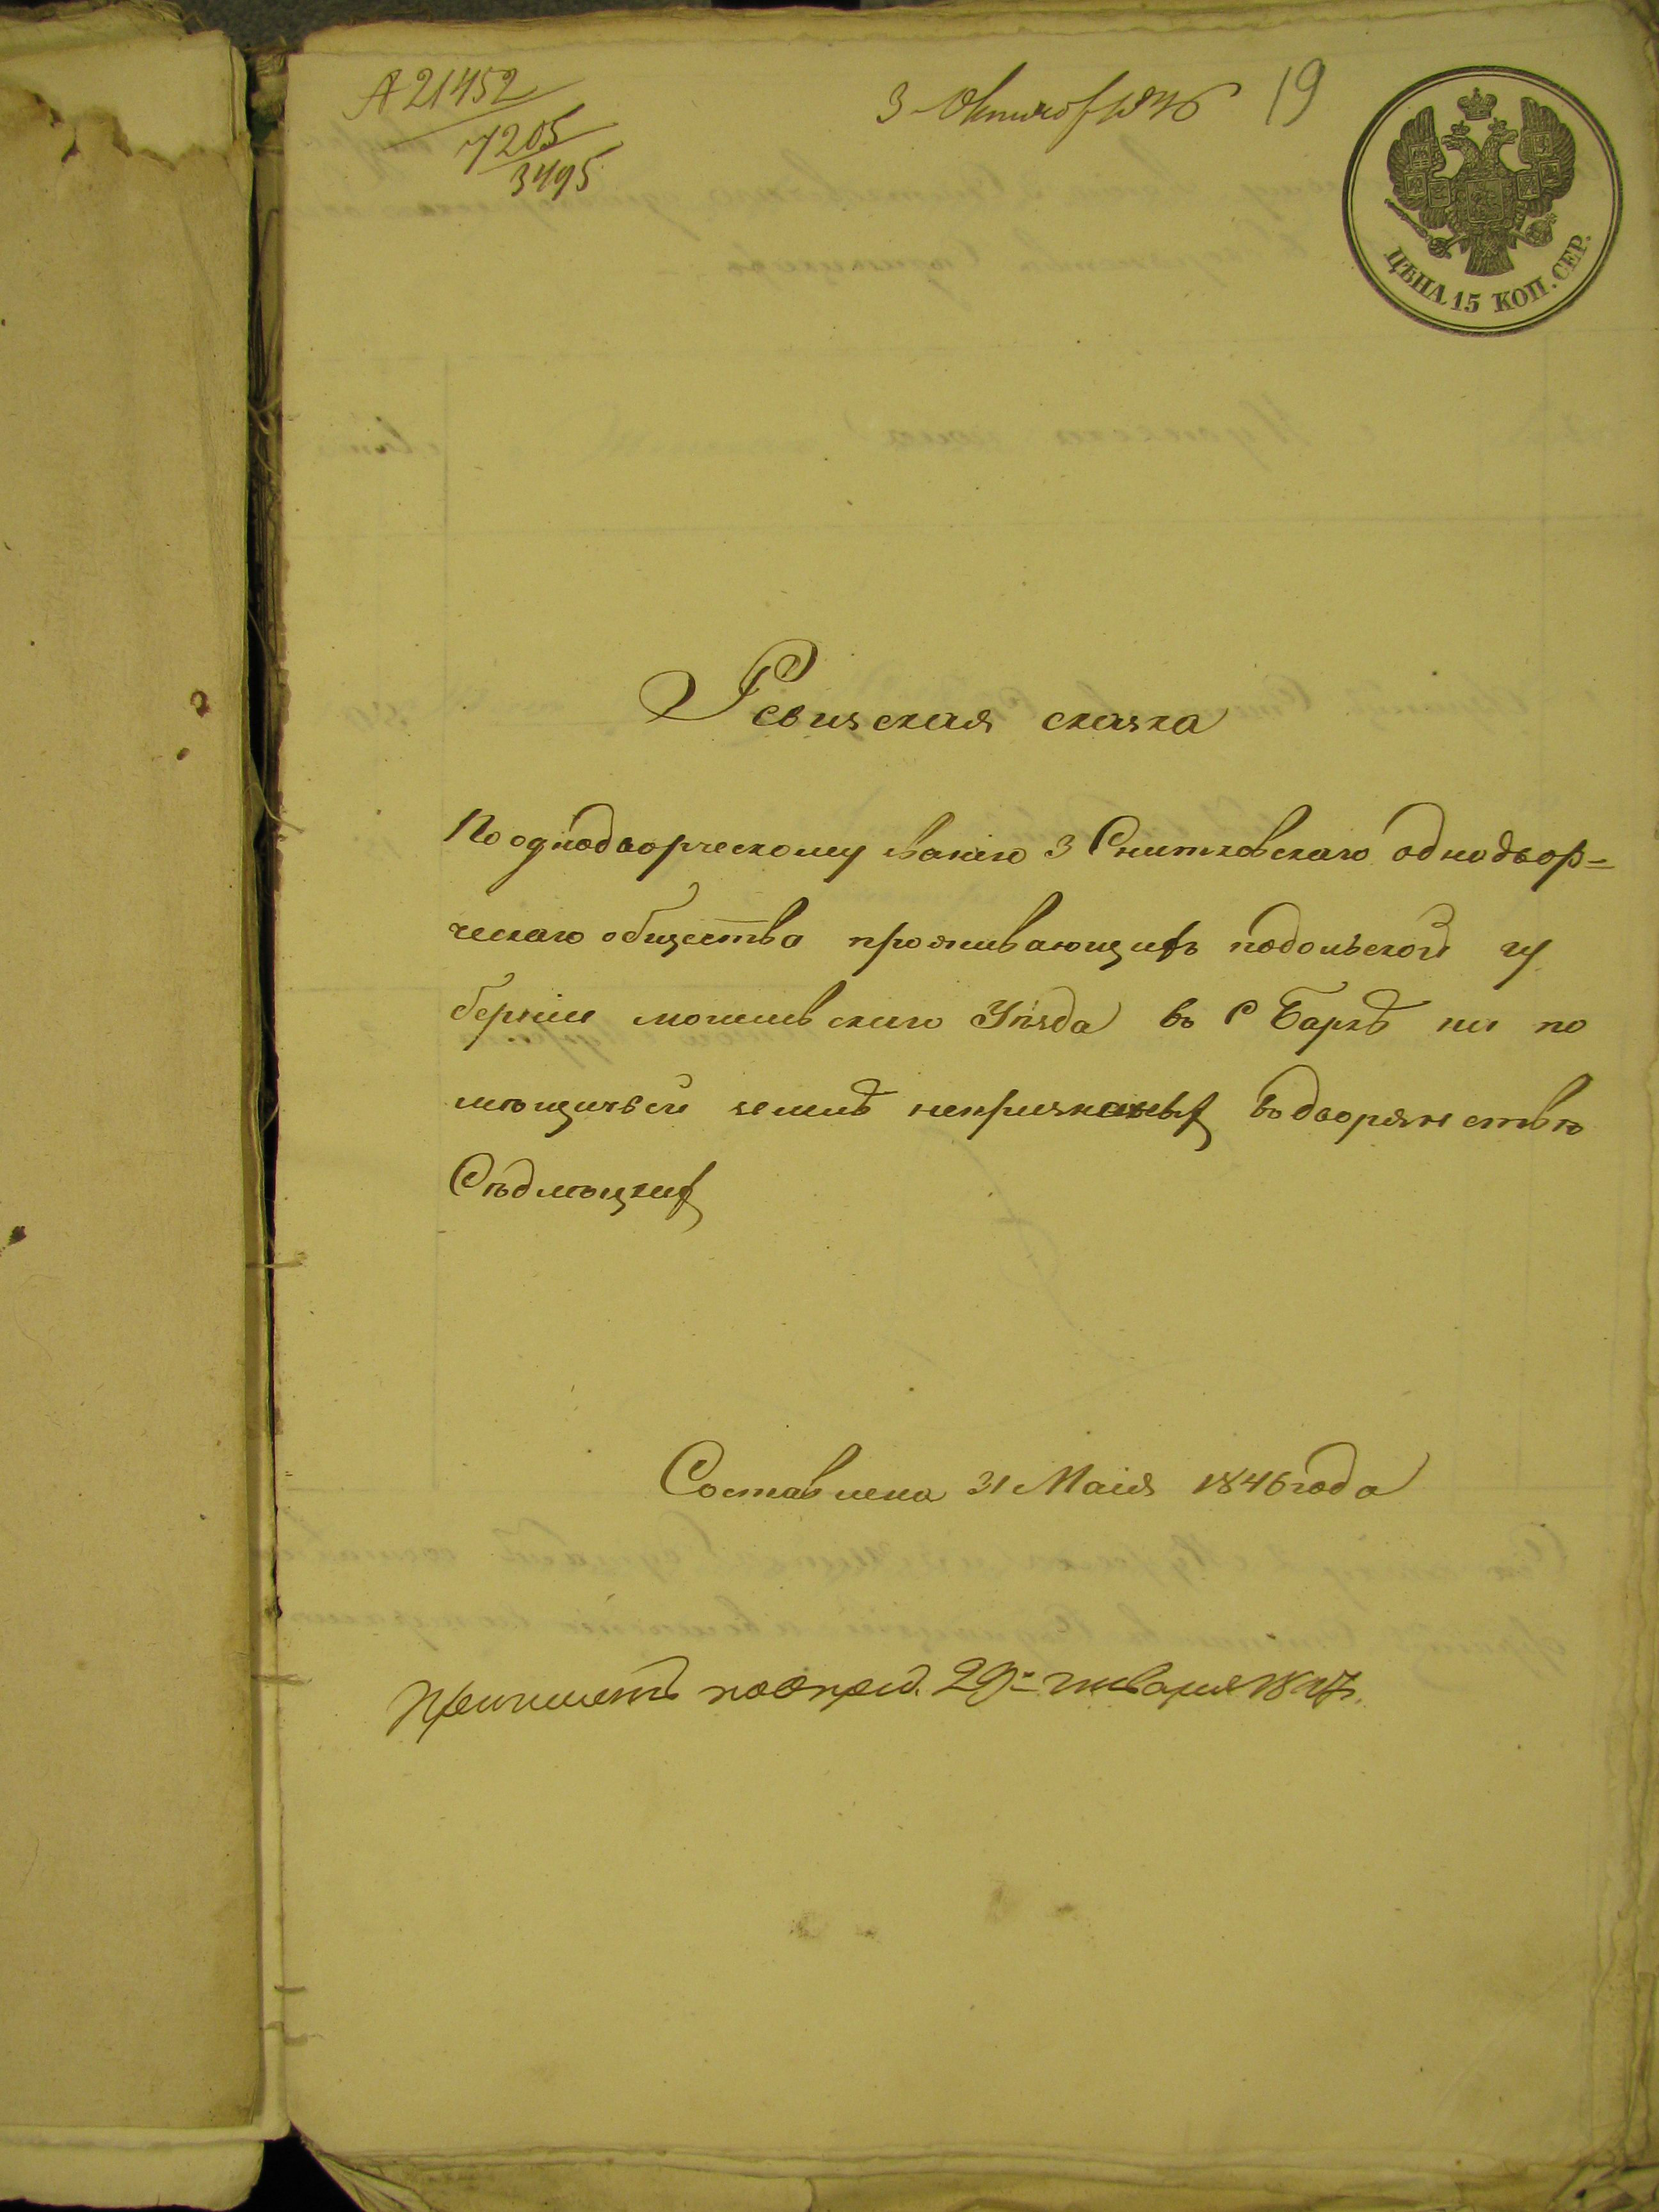 А 21452
7205
3495
3 Октяб 1846
19
ЦѢНА 15 КОП. СЕР.
Ревизская сказка
По однодворческому званію 3 Снитковскаго однодвор=
ческаго общества проживающихъ подольской гу
берніи могилевскаго Уѣзда въ С Баркѣ на по
мѣщичьей землѣ непризнаныхъ въ дворянствѣ
Сѣдлѣцкихъ
Составлена 31 Маія 1846 года
29 января 1847